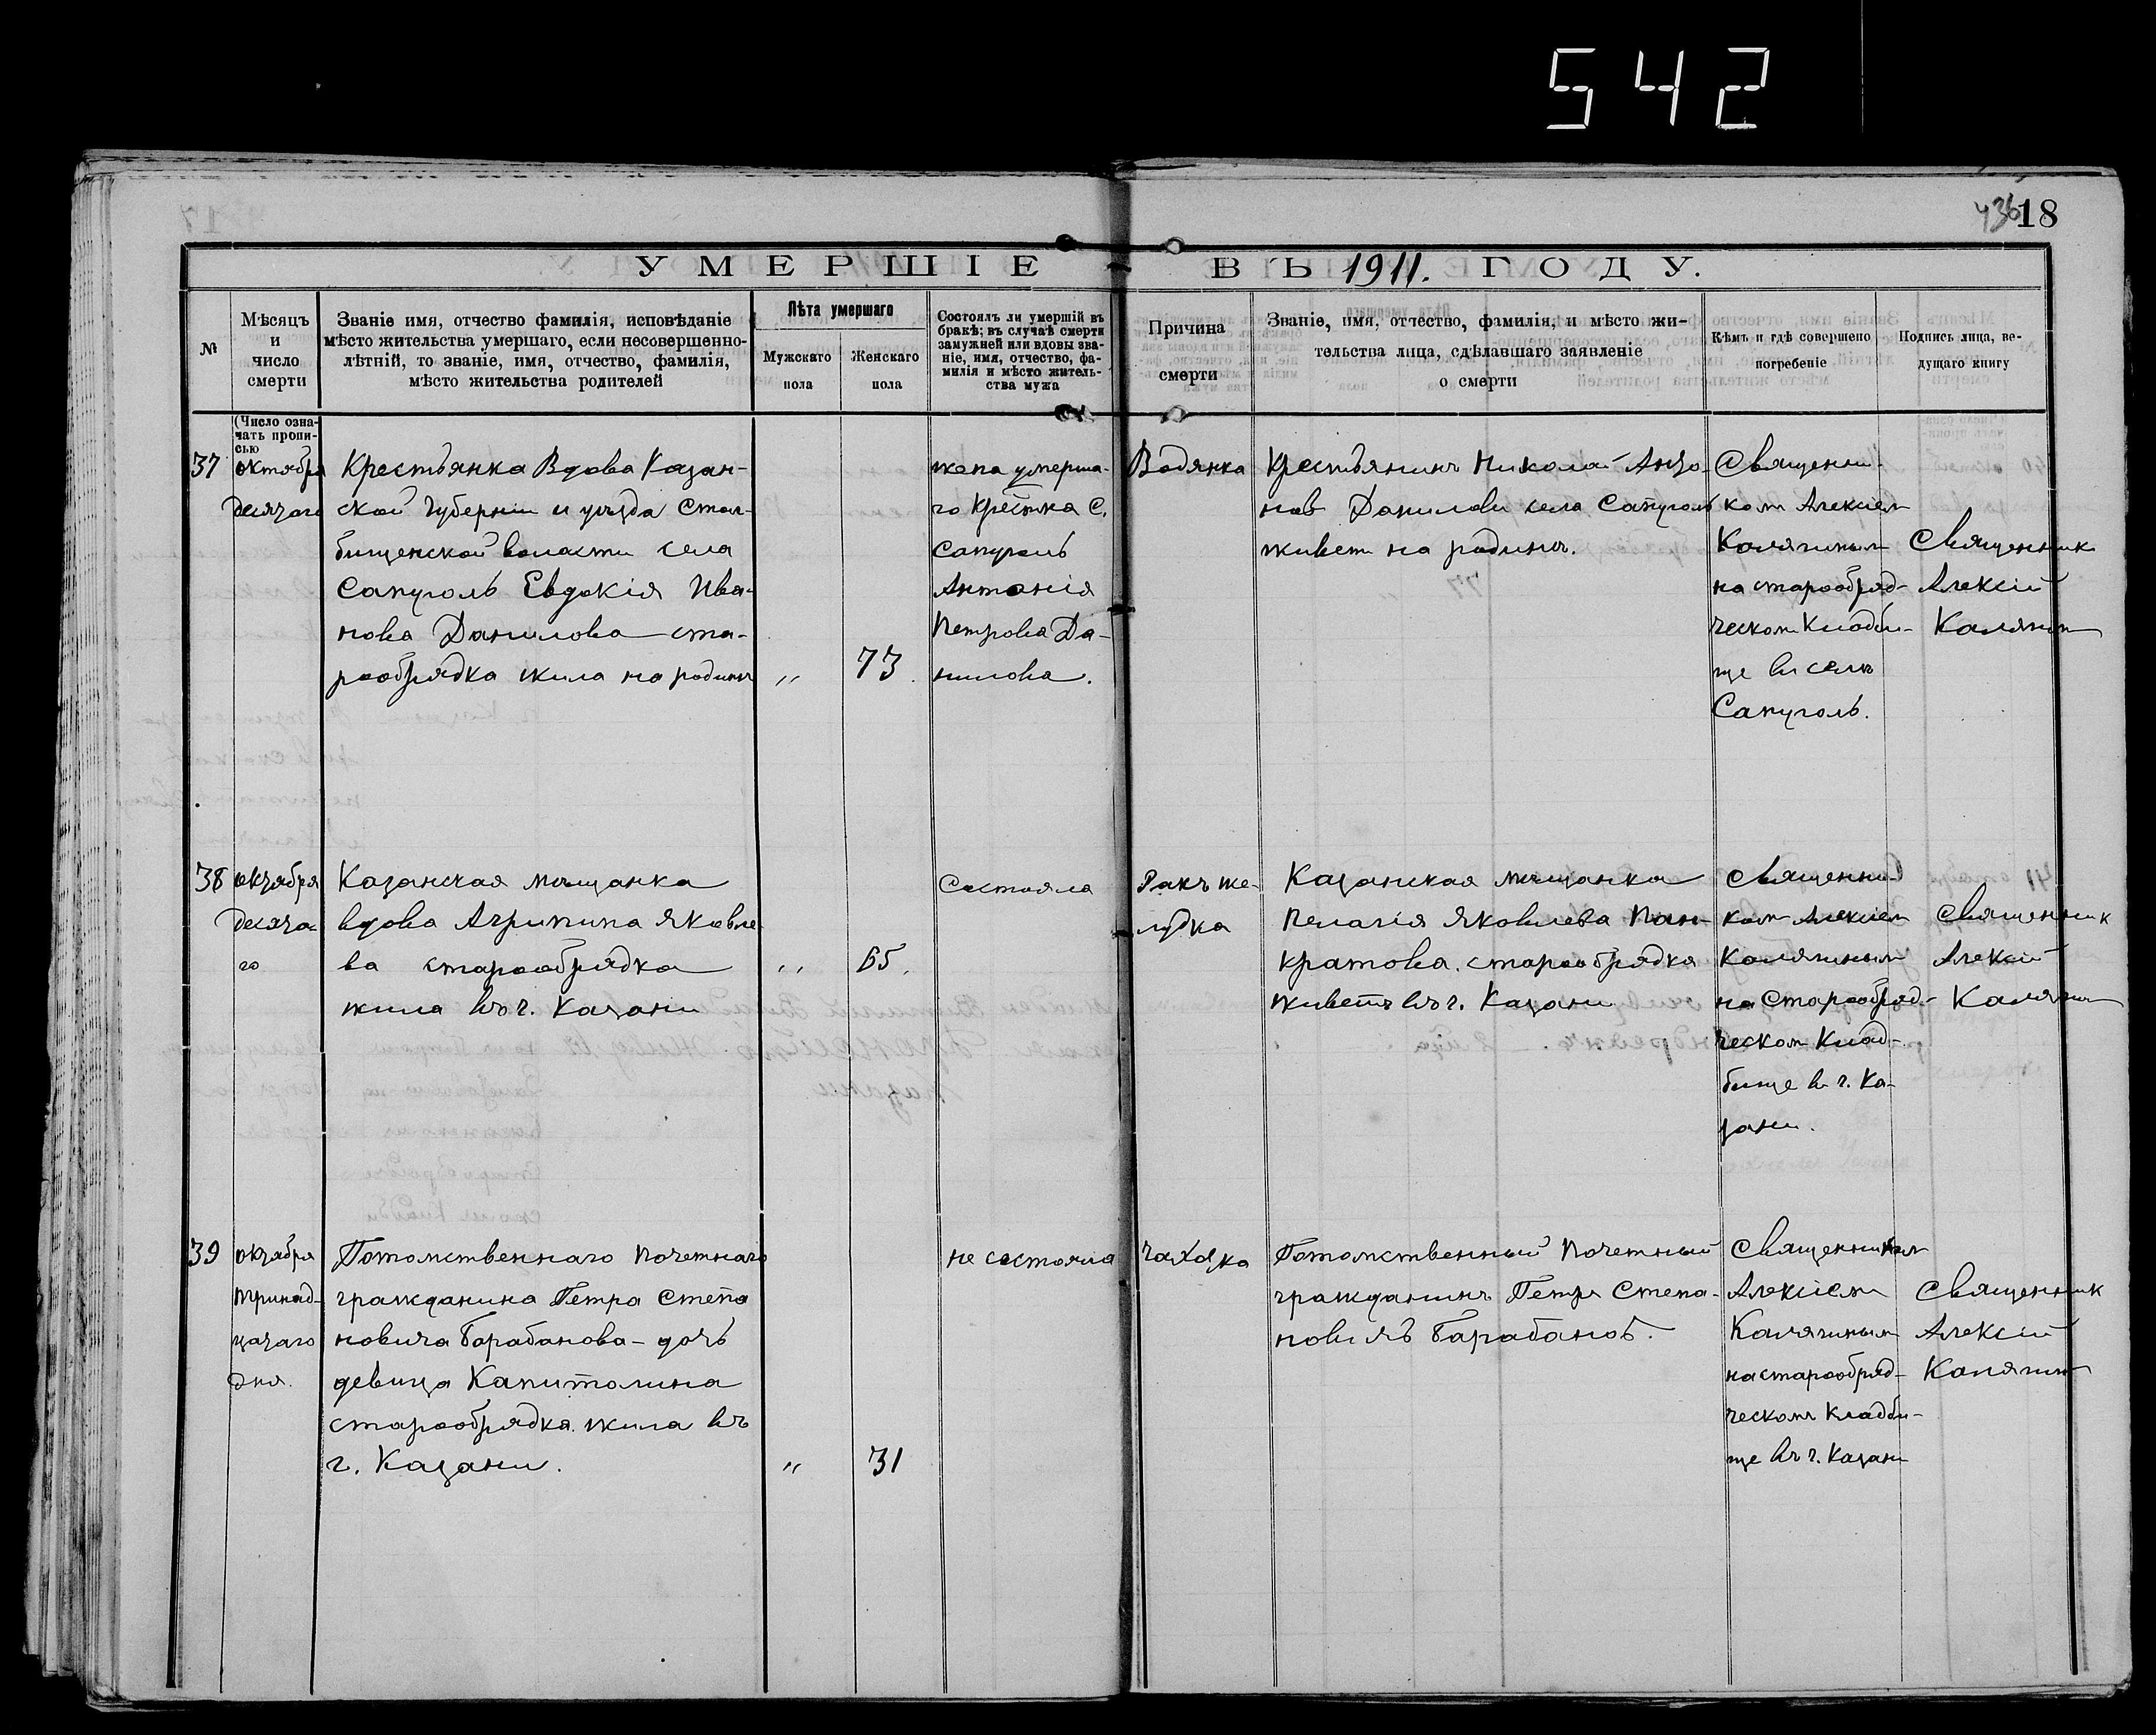 542
43618
УМЕРШІЕ ВЪ 1911. ГОДУ.
№
Мѣсяцъ
и
число
смерти
Званіе имя, отчество фамилія, исповѣданіе
мѣсто жительства умершаго, если несовершенно-
лѣтній, то званіе, имя, отчество, фамилія,
мѣсто жительства родителей
Лѣта умершаго
Мужскаго
пола
Женскаго
пола
Состоялъ ли умершій въ
бракѣ; въ случаѣ смерти
замужней или вдовы зва-
ніе, имя, отчество, фа-
милія и мѣсто житель-
ства мужа
Причина
смерти
Званіе, имя, отчество, фамилія, и мѣсто жи-
тельства лица, сдѣлавшаго заявленіе
о смерти
Кѣмъ и гдѣ совершено
погребеніе
Подпись лица, ве-
дущаго книгу
(Число озна-
чать пропи-
сью
37
октября
десятаго
Крестьянка Вдова Казан-
ской губерніи и уѣзда Стол-
бищенской волости села
Сапуголь Евдокія Ива-
нова Данилова ста-
рообрядка жила на родинѣ
"
73.
жена умерша-
го Крестнка С.
Сапуголь
Антонія
Петрова Да-
нилова.
Водянка
Крестьянинъ Николай Анто-
нов Данилови села Сапуголь
живет на родинѣ.
Священни-
ком Алексіем
Калягиным
на старообряд-
ческом Кладби-
ще в селѣ
Сапуголь.
Священник
Алексій
Калягин
38
октября
десята-
го
Казанская мѣщанка
вдова Агрипина Яковле-
ва старообрядка
жила въ г. Казани
"
65.
Состояла
Ракъ же-
лудка
Казанская мѣщанка
Пелагія Яковлева Пан-
кратова. старообрядка
живетъ въ г. Казани
Священни-
ком Алексіем
Калягиным
на Старообряд-
ческом Клад-
бище в г. Ка-
зани.
Священник
Алексій
Калягин
39
октября
тринад-
цатаго
дня.
Потомственнаго почетнаго
гражданина Петра Степа
новича Барабанова - дочь
девица Капитолина
старообрядка. жила въ
г. Казани.
"
31
не состояла
чахотка
Потомственный почетный
гражданинъ Петръ Степа-
новичъ Барабанов.
Священником
Алексіем
Калягиным
на старообряд-
ческомъ Кладби-
ще въ г. Казани
Священник
Алексій
Калягин